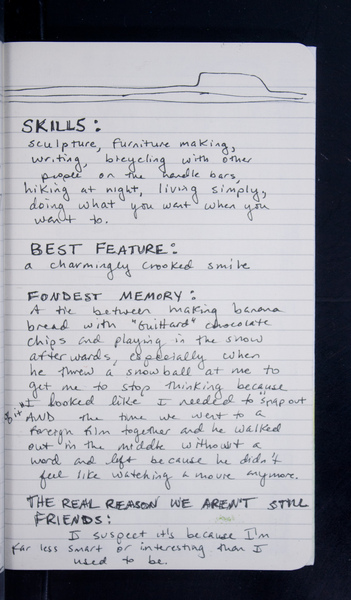 SKILLS:
sculpture, furniture making,
writing, bicycling with other
people on the handle bars,
hiking at night, living simply,
doing what you want when you
want to.
BEST FEATURE:
a charmingly crooked smile
FONDEST MEMORY:
A tie between making banana
bread with "Guittard" chocolate
chips and playing in the snow
afterwards, especially when
he threw a snowball at me to
get me to stop thinking because
I looked like I needed to "snap out
of it"
AND the time we went to a
foreign film together and he walked
out in the middle without a
word and left because he didn't
feel like watching a movie anymore.
THE REAL REASON WE AREN'T STILL
FRIENDS:
I suspect it's because I'm
far less smart or interesting than I
used to be.